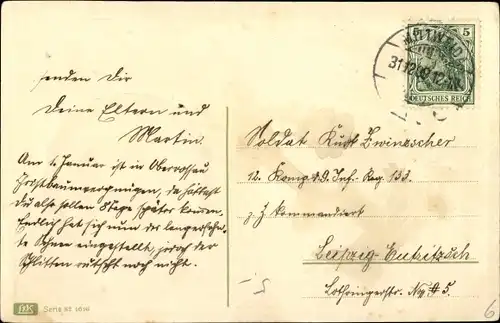 senden Dir
Deine Eltern und
Martin.
Am 1. Januar ist in Oberrossau
Christbaumvergnügen, da hättest
Du also sollen 8 Tage später kommen.
Endlich hat sich nun der langersehn-
te Schnee eingestellt, jedoch der
Schlitten rutscht noch nicht.
DEUTSCHES REICH
5 5
31.12.09.12-1N.
Soldat Kurt Zwinzscher
12. Komp. 9. Inf. Reg. 133.
z. Z. kommandiert
Leipzig-Eutritzsch
Lothringerstr. No 5.
Serie 92